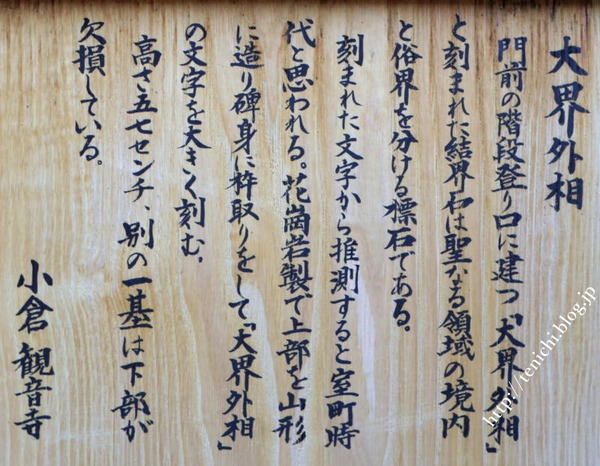 大界外相
門前の階段登り口に建つ「大界外相」
と刻まれた結界石は聖なる領域の境内
と俗界を分ける標石である。
刻まれた文字から推測すると室町時
代と思われる。花崗岩製で上部を山形
に造り碑身に枠取りをして「大界外相」
の文字を大きく刻む。
高さ五七センチ、別の一基は下部が
欠損している。
小倉 観音寺
http://tenichi.blog.jp